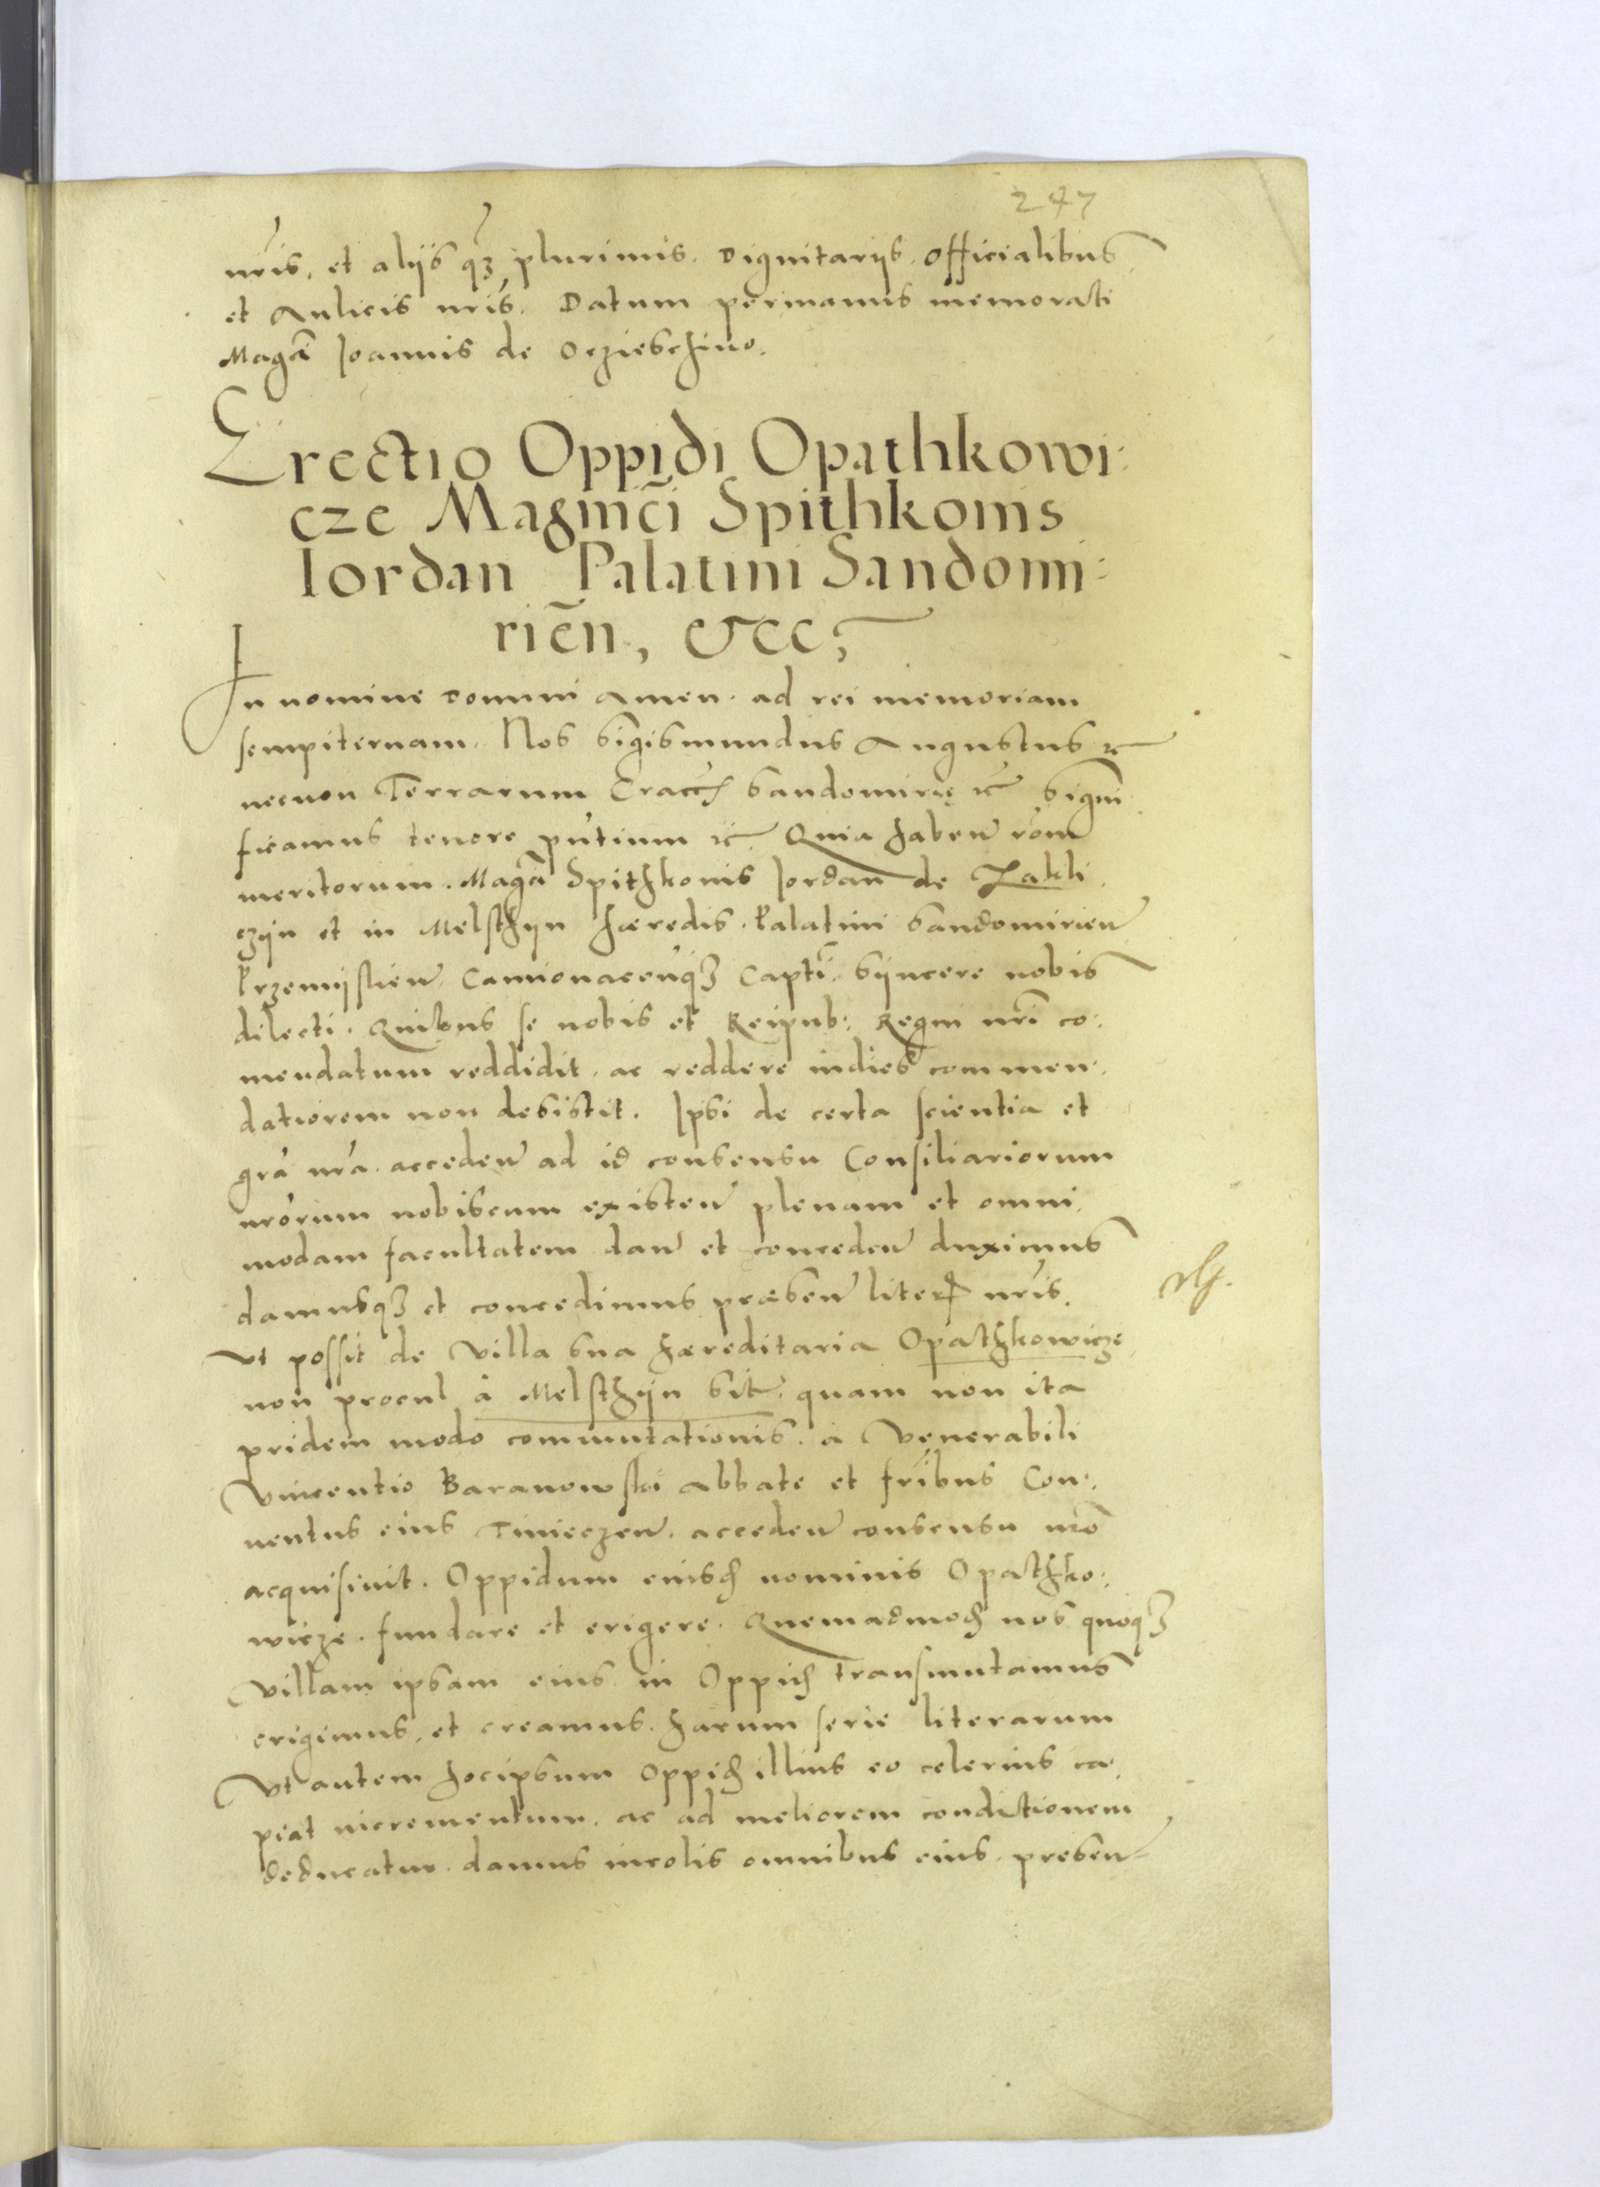 247
nr̃is, et alijs q̃ꝫ plurimis. Dignitarijs. Officialibus
et Aulicis nr̃is. Datum per manus memorati
Magc̃i Joannis de Oczieschino.
Erectio Oppidi Opathkowi:
cze Magnic̃i Spithkonis
Iordan Palatini Sandomi:
rieñ, &cc,
In nomine Domini Amen. ad rei memoriam
sempiternam. Nos Sigismundus Augustus ꝛc
necnon Terrarum Cracoꝟ Sandomirię ꝛc̃ Signi
ficamus tenore pñtium ꝛc̃. Quia habeñ rõm
meritorum. Magc̃i Spithkonis Jordan de Zakli
czijn et in Melsthijn hæredis. Palatini Sandomirieñ
Przemijslieñ Camionaceñqꝫ Capt̃i. Sijncere nobis
dilecti. Quibus se nobis et Reipub: Regni nr̃i co:
mendatum reddidit. ac reddere indies commen:
datiorem non desistit. Ipsi de certa scientia et
gr̃a nr̃a. accedeñ ad id consensu Consiliariorum
nr̃orum nobiscum existeñ plenam et omni
modam facultatem dañ et concedeñ duximus
damusqꝫ et concedimus præseñ literꝭ nr̃is.
Vt possit de Villa sua hæreditaria Opathkowicze
non procul à Melsthijn sit̃. quam non ita
pridem modo commutationis. à Venerabili
Vincentio Baranowski Abbate et fr̃ibus Con:
uentus eius Tinieczeñ. accedeñ consensu nr̃o
acquisiuit. Oppidum eiusd̃ nominis Opathko:
wicze. fundare et erigere. Quemadmod̃ nos quoqꝫ
Villam ipsam eius in Oppid̃ transmutamus
erigimus, et creamus. harum serie literarum
Vt autem hocipsum Oppid̃ illius eo celerius ca
piat incrementum. ac ad meliorem conditionem
deducatur. damus incolis omnibus eius. preseñ